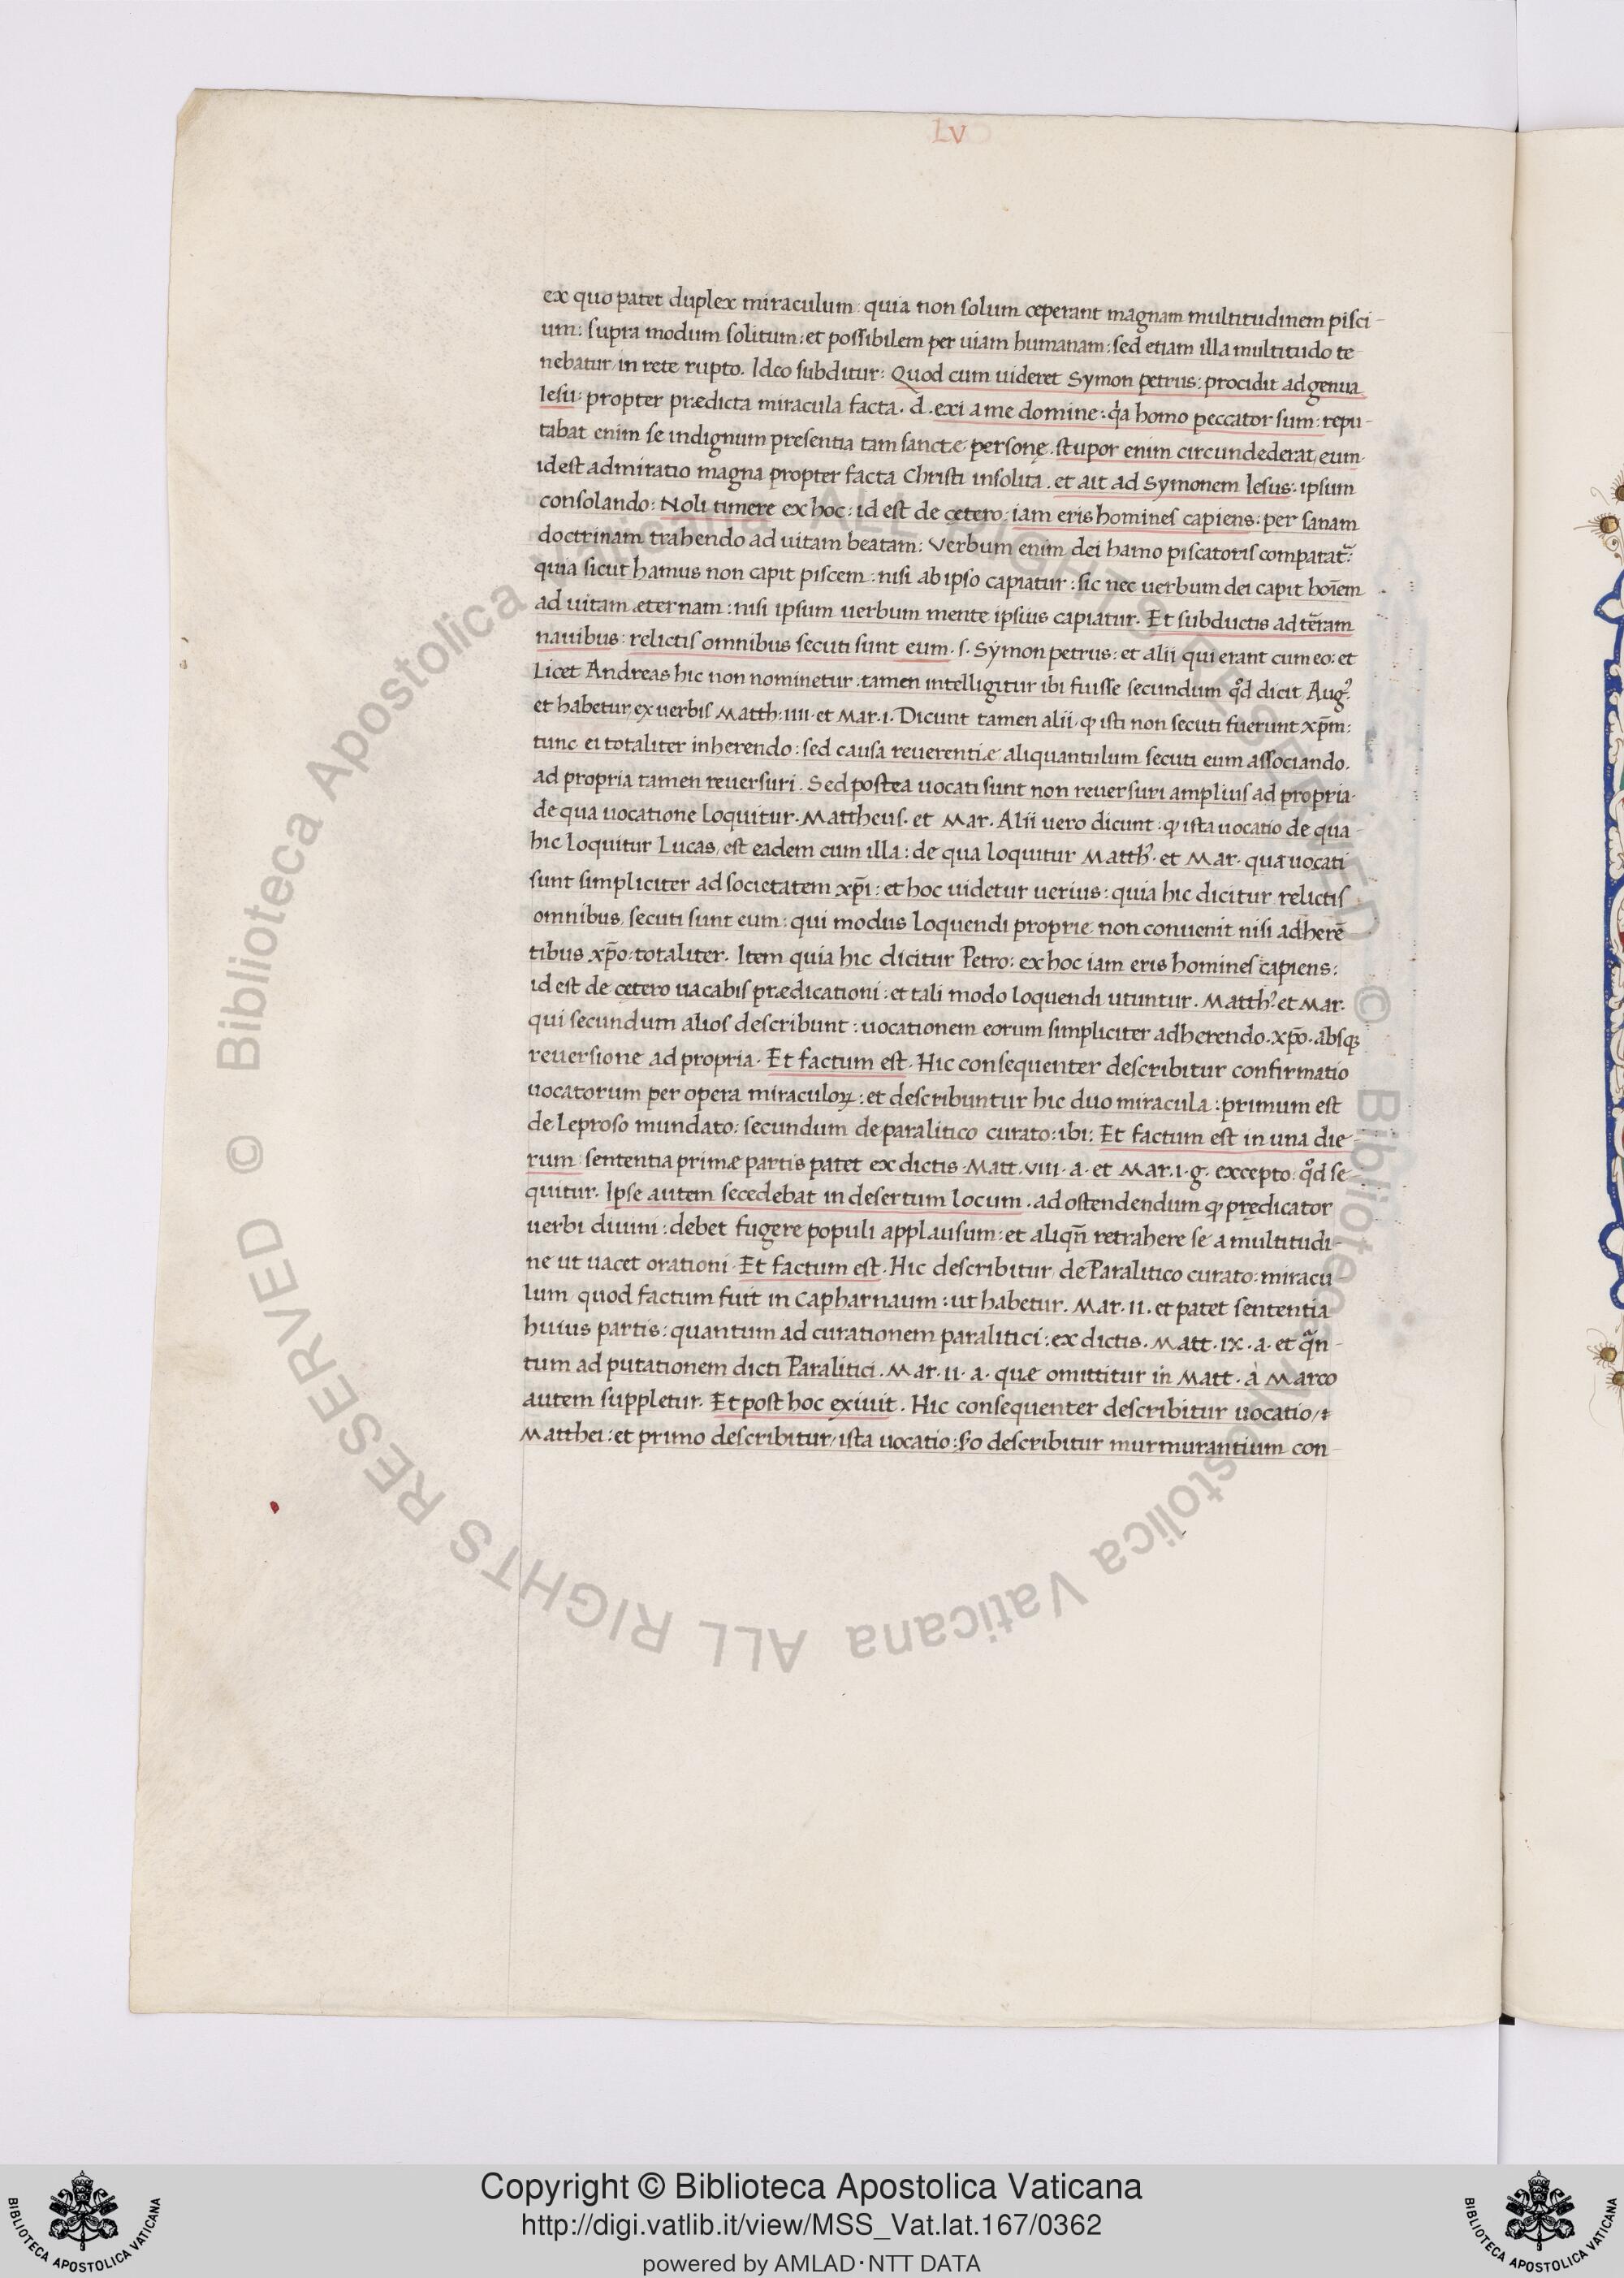 LV
ex quo patet duplex miraculum: quia non solum ceperant magnam multitudinem pisci-
um: supra modum solitum: et possibilem per uiam humanam: sed etiam illa multitudo te-
nebatur in rete rupto. Ideo subditur: Quod cum uideret Symon petrus: procidit ad genua
Iesu: propter prædicta miracula facta. d̄. exi a me domine: q̇a homo peccator sum: repu-
tabat enim se indignum presentia tam sanctæ personę. stupor enim circundederat eum
id est admiratio magna propter facta Christi insolita. et ait ad Symonem Iesus: ipsum
consolando: Noli timere ex hoc: id est de cętero: iam eris homines capiens: per sanam
doctrinam trahendo ad uitam beatam: Verbum enim dei hamo piscatoris comparat᷑:
quia sicut hamus non capit piscem: nisi ab ipso capiatur: sic nec uerbum dei capit hoīem
ad uitam æternam: nisi ipsum uerbum mente ipsius capiatur. Et subductis ad tēram
nauibus: relictis omnibus secuti sunt eum. s. Symon petrus: et alii qui erant cum eo: et
Licet Andreas hic non nominetur: tamen intelligitur ibi fuisse secundum qd̊ dicit Aug⁹.
et habetur ex uerbis Matth: IIII. et Mar. I. Dicunt tamen alii ꝙ isti non secuti fuerunt xp̄m:
tunc ei totaliter inherendo: sed causa reuerentiæ aliquantulum secuti eum associando.
ad propria tamen reuersuri. Sed postea uocati sunt non reuersuri amplius ad propria.
de qua uocatione Loquitur. Mattheus. et Mar. Alii uero dicunt: ꝙ ista uocatio de qua
hic Loquitur Lucas, est eadem cum illa: de qua loquitur Matth⁹. et Mar. qua uocati
sunt simpliciter ad societatem xp̄i: et hoc uidetur uerius: quia hic dicitur relictis
omnibus, secuti sunt eum: qui modus Loquendi proprie non conuenit nisi adherē
tibus xp̄o: totaliter. Item quia hic dicitur Petro: ex hoc iam eris homines capiens:
id est de cętero uacabis prædicationi: et tali modo loquendi utuntur. Matth⁹. et Mar.
qui secundum alios describunt: uocationem eorum simpliciter adherendo. xp̄o. absqꝫ
reuersione ad propria. Et factum est. Hic consequenter describitur confirmatio
uocatorum per opera miraculoꝝ: et describuntur hic duo miracula: primum est
de Leproso mundato: secundum de paralitico curato: ibi: Et factum est in una die-
rum: sententia primæ partis patet ex dictis. Matt. VIII. a. et Mar. I. g. excepto: qd̊ se-
quitur. Ipse autem secedebat in desertum locum. ad ostendendum ꝙ prędicator
uerbi diuini: debet fugere populi applausum: et aliqn̄ retrahere se a multitudi-
ne ut uacet orationi. Et factum est. Hic describitur de Paralitico curato: miracu-
lum quod factum fuit in Capharnaum: ut habetur. Mar. II. et patet sententia
huius partis: quantum ad curationem paralitici: ex dictis. Matt. IX. a. et qᷓn-
tum ad putationem dicti Paralitici. Mar. II. a. quæ omittitur in Matt. à Marco
autem suppletur. Et post hoc exiuit. Hic consequenter describitur uocatio
Matthei: et primo describitur, ista uocatio: s̊o describitur murmurantium con-
© Biblioteca Apostolica Vaticana ALL RIGHTS RESERVED © Biblioteca Apostolica Vaticana ALL RIGHTS RESERVED
BIBLIOTECA APOSTOLICA VATICANA
Copyright © Biblioteca Apostolica Vaticana
http://digi.vatlib.it/view/MSS_Vat.lat.167/0362
powered by AMLAD·NTT DATA
BIBLIOTECA APOSTOLICA VATICANA